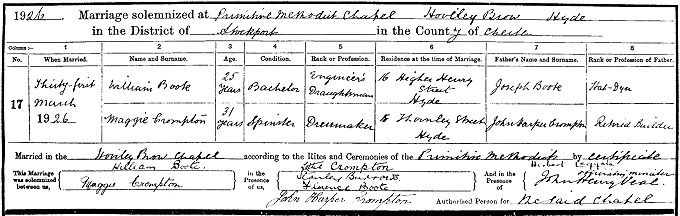 1926 Marriage solemnized at Primitive Methodist Chapel Hoviley Brow Hyde
in the District of Stockport in the County of Chester
Column:— 1 2 3 4 5 6 7 8
No. When Married. Name and Surname. Age. Condition. Rank or Profession. Residence at the time of Marriage. Father's Name and Surname. Rank or Profession of Father.
17 Thirty-first March 1926
William Boote 25 years Bachelor Engineer's Draughtsman 16 Higher Henry Street Hyde Joseph Boote Hat-Dyer
Maggie Crompton 31 years Spinster Dressmaker 15 Thornley Street Hyde John Harper Crompton Retired Builder
Married in the Hoviley Brow Chapel according to the Rites and Ceremonies of the Primitive Methodists by certificate
This Marriage was solemnized between us,
William Boote
Maggie Crompton
in the Presence of us,
Crompton
Stanley Burrows
Florence Boote
John Harper Crompton
And in the Presence of
Herbert officiating minister
John Henry Veal
Authorised Person for the said Chapel